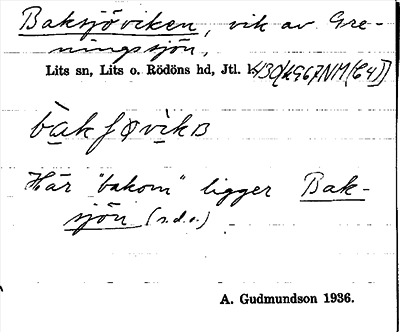 Baksjöviken, vik av Gre-
ningssjön,
Lits sn, Lits o. Rödöns hd, Jtl.
Här "bakom" ligger Bak-
sjön (s.d.o.)
A. Gudmundson 1936.